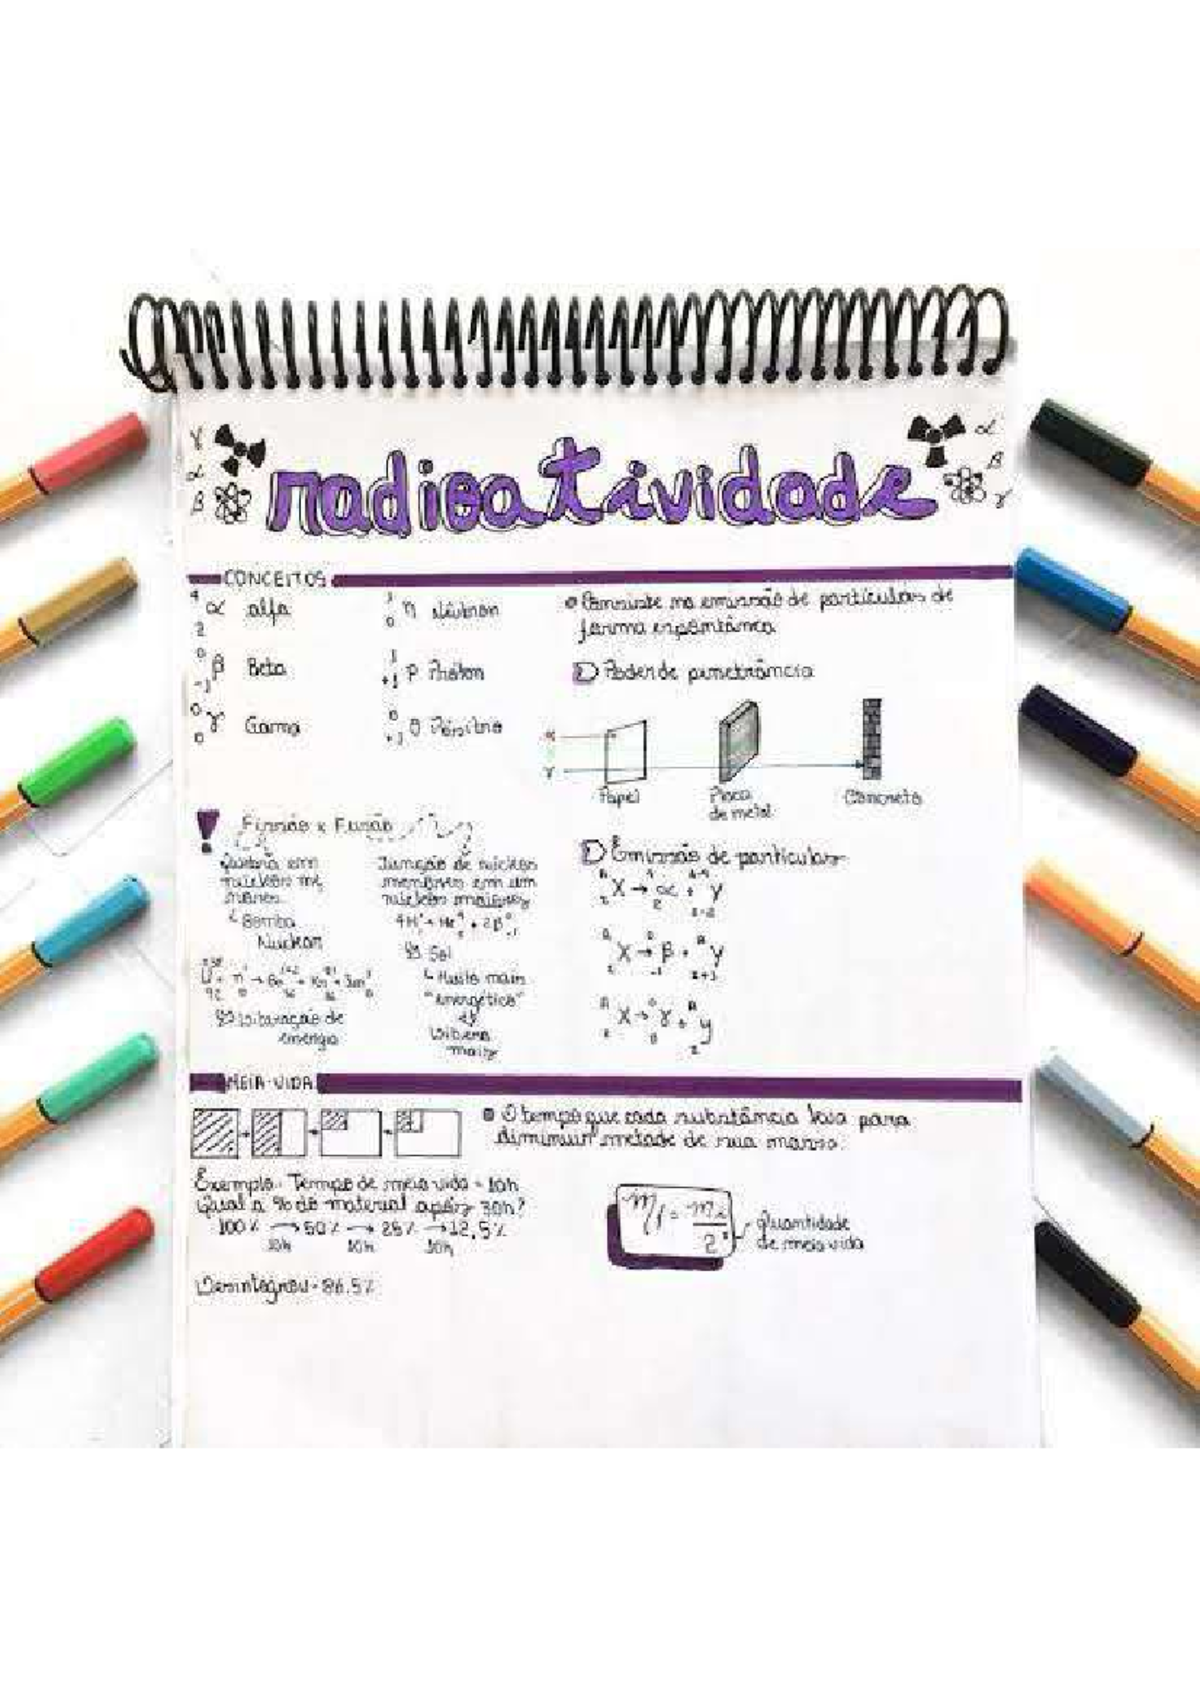 γ
α
β
radioatividade
α
β
γ
CONCEITOS
4 2 α alfa
1 0 n Nêutron
0 -1 β Beta
1 +1 P Próton
0 0 γ Gama
0 +1 Pósitron
Consiste na emissão de partículas de
forma espontânea
Poder de penetrância
α
γ
Papel
Placa
de metal
Concreto
! Fissão x Fusão
Quebra em
núcleos me
nores
Bomba
Nuclear
Liberação de
energia
Junção de núcleos
menores em um
núcleo maior
4H¹ → He⁴ + 2β⁰
Sol
Muito mais
"energética"
Libera
mais
Emissão de partículas
X → α + Y
X → β + Y
X → γ + y
MEIA-VIDA
O tempo que cada substância leva para
diminuir metade de sua massa.
Exemplo: Tempo de meia vida = 10h
Qual a % do material após 30h?
100% → 50% → 25% → 12,5%
10h 10h 10h
Desintegrou = 86.5%
quantidade
de meia vida